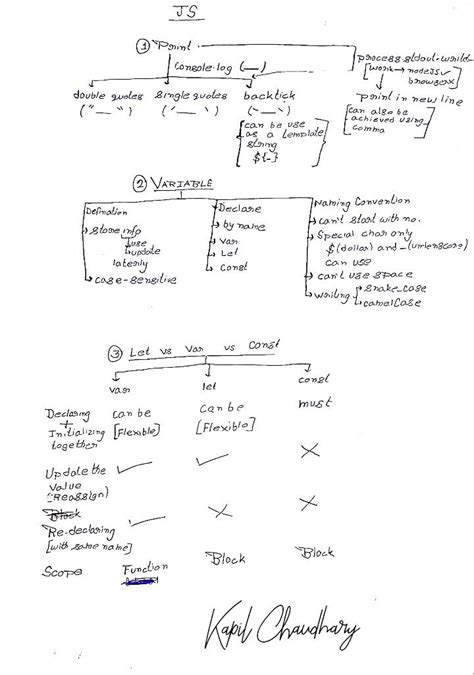 JS
① Print
Console.log (__)
process.stdout.write
[work → nodeJS✓
browser×
double quotes single quotes backtick
("__") ('__') (`__`)
→ print in new line
[can also be
achieved using
comma
[can be use
as a template
string
${-}]
② VARIABLE
Definition
→ store info
→ use
→ update
laterily
→ case-sensitive
Declare
→ by name
→ Var
→ Let
→ Const
Naming Convention
→ can't start with no.
→ Special char only
$(dollar) and _(underscore)
can use
→ can't use space
→ writing → snake_case
→ camelCase
③ Let vs Var vs Const
var let const
Declaring + Initializing together can be [Flexible] can be [Flexible] must
Update the value (Reassign) ✓ ✓ ×
Block
Re-declaring [with same name] ✓ × ×
Scope Function Block Block
Kapil Chaudhary